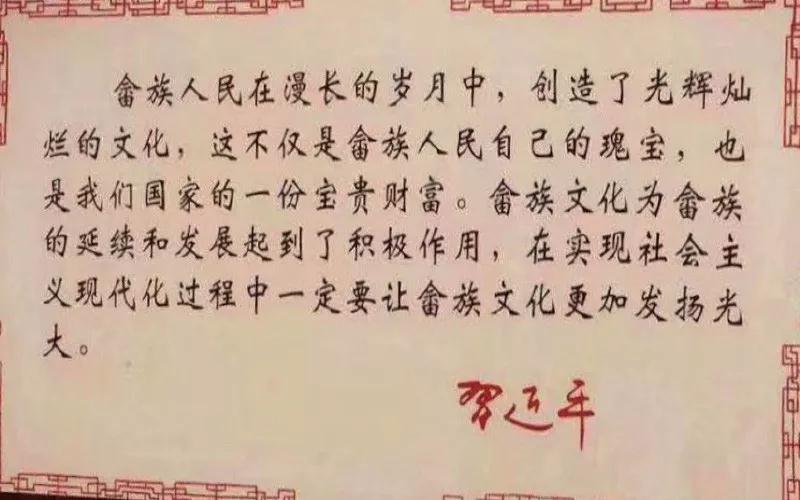 畲族人民在漫长的岁月中，创造了光辉灿
烂的文化，这不仅是畲族人民自己的瑰宝，也
是我们国家的一份宝贵财富。畲族文化为畲族
的延续和发展起到了积极作用，在实现社会主
义现代化过程中一定要让畲族文化更加发扬光
大。
习近平